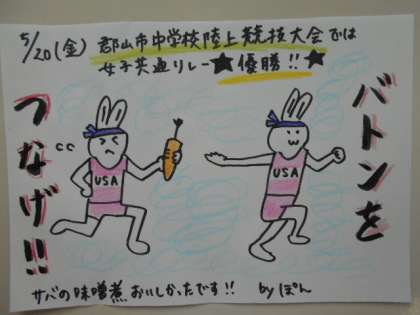 5/20(金) 郡山市中学校陸上競技大会では
女子共通リレー★優勝!!★
バトンを
つなげ!!
USA
USA
サバの味噌煮おいしかったです!! byぽん